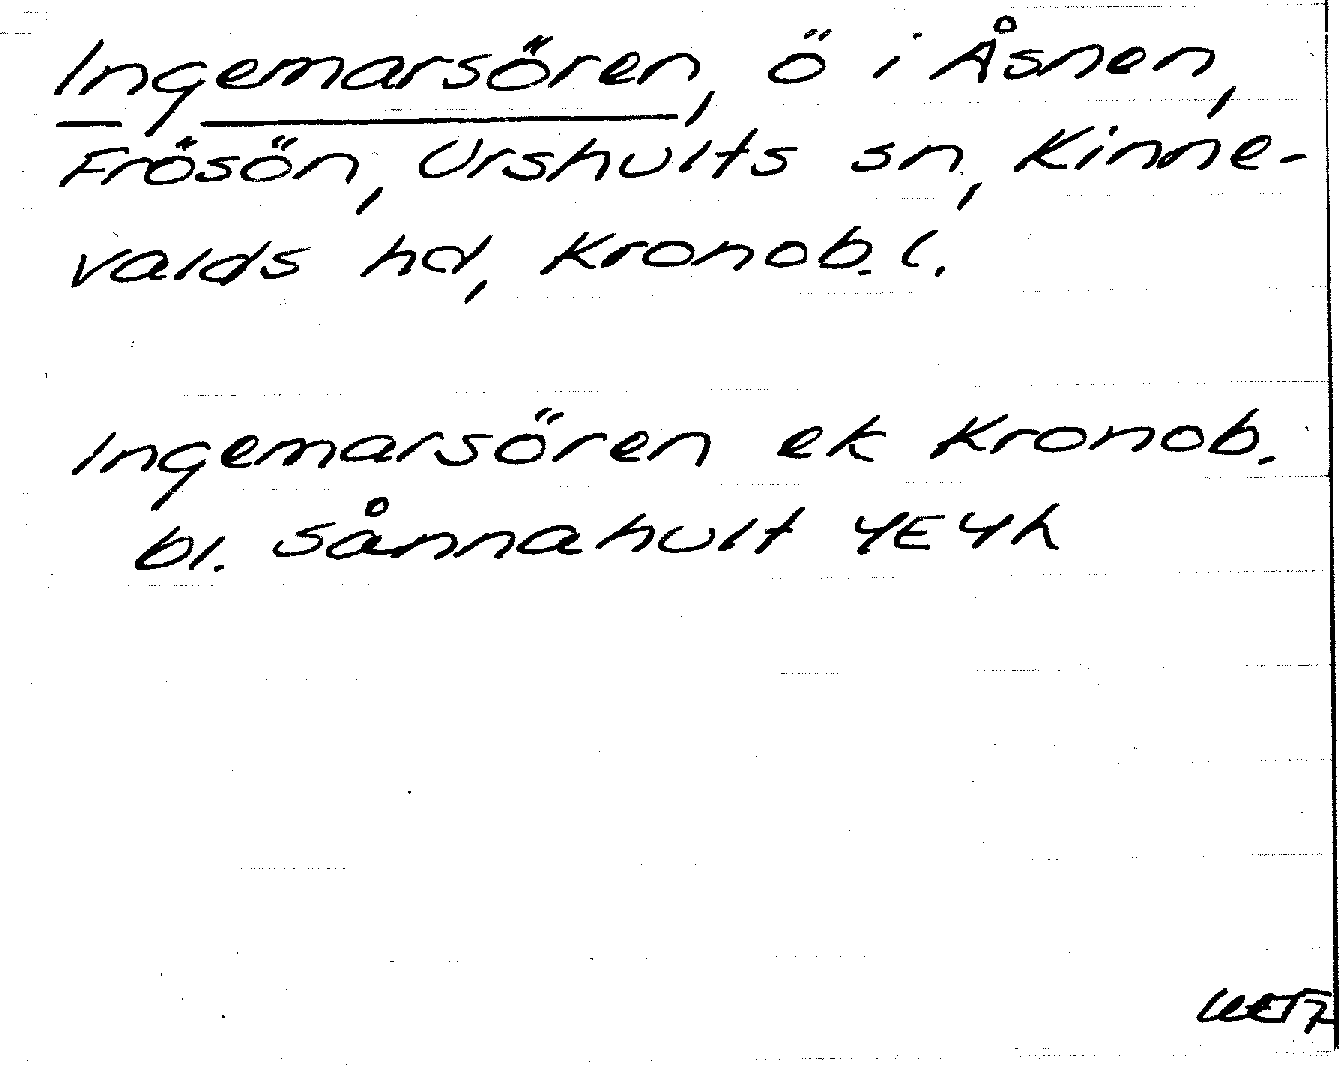 Ingemarsören, ö i Åsnen,
Frösön, Urshults sn, Kinne-
valds hd, Kronob. l.
Ingemarsören ek Kronob.
bl. Sånnahult 4E4h